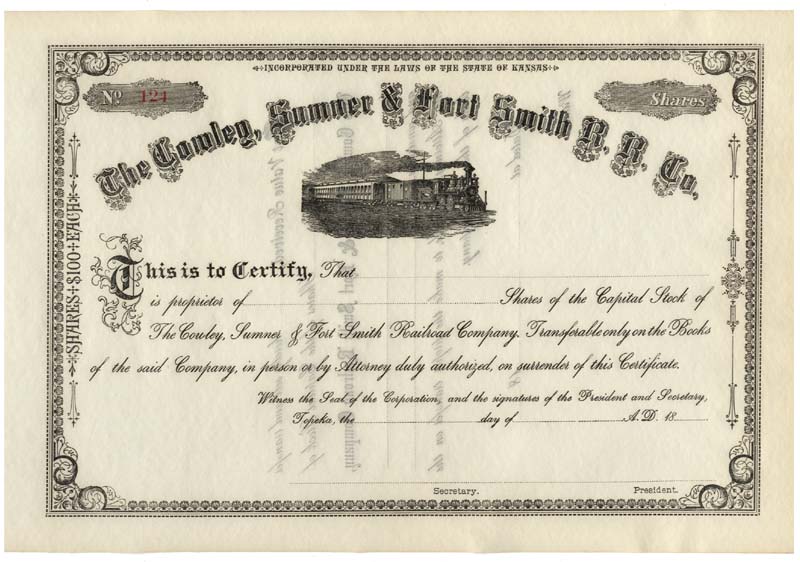 INCORPORATED UNDER THE LAWS OF THE STATE OF KANSAS
No 124
Shares
The Cowley, Sumner & Fort Smith R. R. Co.
SHARES $100 EACH
This is to Certify, That
is proprietor of Shares of the Capital Stock of
The Cowley, Sumner & Fort Smith Railroad Company. Transferable only on the Books
of the said Company, in person or by Attorney duly authorized, on surrender of this Certificate.
Witness the Seal of the Corporation, and the signatures of the President and Secretary,
Topeka, the day of A.D. 18
Secretary. President.